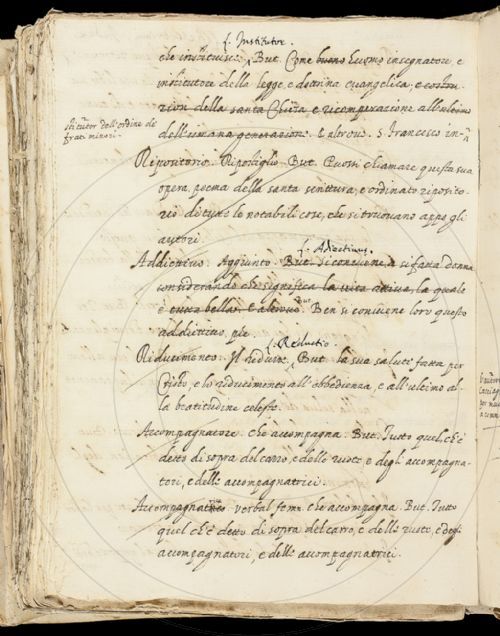 f. Institutore.
che instituisce. But. Come buono huomo insegnatore, e
institutore della legge, e dottrina euangelica,
zion della santa Chiesa e ricomperazione all'ultimo
dell'umana generazione. E altroue. S. Francesco
dell'ordine de'
frati minori.
Ripositorio. Ripostiglio. But. Puossi chiamare questa sua
opera, poema della santa scrittura, e ordinato riposito-
rio di tutte le notabili cose, che si truouano appo gli
autori.
f. Adiectiuus.
Addiettiuo. Aggiunto. But. si conuiene a si fatta donna
considerando che significa la uita attiua, la quale
è tutta bella. E altroue. But. Ben si conuiene loro questo
addiettiuo, pie.
f. Reductio.
Riducimento. Il ridurre. But. la sua salute fatta per
Cristo, e lo riducimento all'obbedienza, e all'ultimo al-
la beatitudine celeste.
Accompagnatore. che accompagna. But. Tutto quel, ch'è
detto di sopra del carro, e delle ruote, e degli accompagna-
tori, e delle accompagnatrici.
Accompagnatrice. verbal femm. che accompagna. But. Tutto
quel ch'è detto di sopra del carro, e delle ruote, e degli
accompagnatori, e delle accompagnatrici.